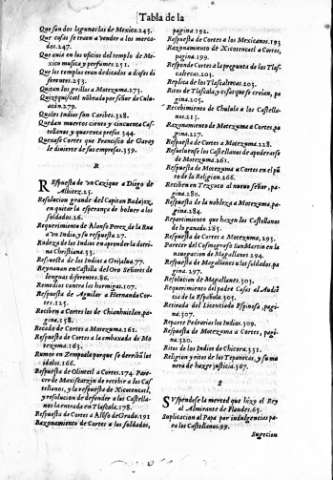 Tabla de la
Que son dos lagunas las de Mexico.243.
Que cosas se traen a vender a los mercados.247.
Que auia en los oficios del templo de Mexico musica y perfumes.251.
Que los templos eran dedicados a dioses
Quexan los grillos a Motezuma.273.
Quales Indios son Caribes.328.
Quedan muertos ciento y cincuenta Castellanos y quarenta presos.344.
Quexase Cortes que Francisco de Garay le diuierte de sus empresas.359.
R
Respuesta de vn Cazique a Diego de
Resolucion grande del Capitan Badajoz, en quitar la esperança de boluer a los soldados.26.
Requerimiento de Alonso Perez de la Rua a vn Indio, y su respuesta.27.
Rudeza de los Indios en aprender la dotrina Christiana.33.
Respuesta de los Indios a Grijalua.77.
Reynauan en Castilla
lenguas diferentes.86.
Remedios contra las hormigas.107.
Respuesta de Aguilar a Hernando Cortes.125.
Reciben a Cortes los de Chianhuiztlan, pagina.156.
Recado de Cortes a Motezuma.161.
Respuesta de Cortes a la embaxada de Motezuma.163.
Rumor en Zempoala porque se derriban los idolos.166.
Respuesta de Olintetl a Cortes.174.
de Maxiscatzin de recibir a los Castellanos, y la respuesta de Xicotencatl, y resolucion de defender a los Castellanos la entrada en Tlascala.178.
Respuesta de Cortes a Alonso de Grado.191
Razonamiento de Cortes a los soldados,
pagina.192.
Respuesta de Cortes a los Mexicanos.193
Razonamiento de Xicotencatl a Cortes, pagina.199.
Responde Cortes a la pregunta de los Tlascaltecas.203.
Replica de los Tlascaltecas.203.
Ritos de Tlascala, y cosas que se creian, pagina.205.
Recebimiento de Chulula a los Castellanos.213.
Razonamiento de Motezuma a Cortes, pagina.227.
Respuesta de Cortes a Motezuma.228.
Resueluense los Castellanos de apoderarse de Motezuma.261.
Respuesta de Motezuma a Cortes en el punto de la Religion.266.
Reciben en Tezcuco al nueuo señor, pagina.280.
Respuesta de la nobleza a Motezuma, pagina.284.
Repartimiento que hazen los Castellanos de la ganada.285.
Respuesta de Cortes a Motezuma.293.
Parecer del Cosmografo San Martin en la nauegacion de Magallanes.294.
Respuesta de Magallanes a los soldados, pagina.297.
Resolucion de Magallanes.303.
Requerimiento del padre Casas al Audiencia de la Española.305.
Retirada del Licenciado Espinosa, pagina.307.
Reparte Pedrarias los Indios.309.
Respuesta de Motezuma a Cortes, pagina.320.
Ritos de los Indios de Chicora.331.
Religion y ritos de los Tepanecas, y su manera de hazer justicia.367.
S
Suspendese la merced que hizo el Rey al Almirante de Flandes.65.
Suplicacion al Papa por indulgencias para los Castellanos.99.
Sugecion